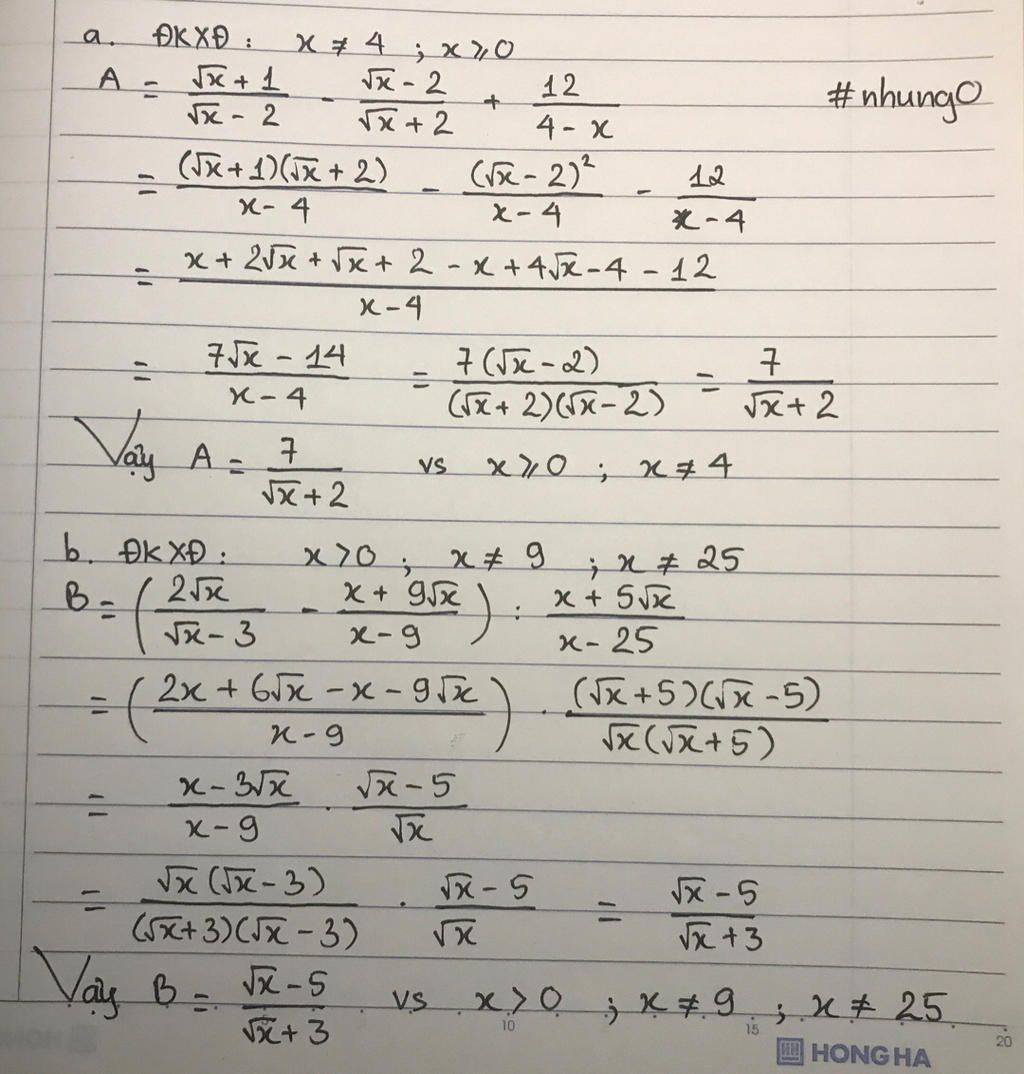 a. ĐKXĐ: x ≠ 4 ; x ⩾ 0
A = (√x + 1)/(√x - 2) - (√x - 2)/(√x + 2) + 12/(4 - x)
#nhung0
= ((√x + 1)(√x + 2))/(x - 4) - (√x - 2)²/(x - 4) - 12/(x - 4)
= (x + 2√x + √x + 2 - x + 4√x - 4 - 12)/(x - 4)
= (7√x - 14)/(x - 4) = (7(√x - 2))/((√x + 2)(√x - 2)) = 7/(√x + 2)
Vậy A = 7/(√x + 2) vs x ⩾ 0 ; x ≠ 4
b. ĐKXĐ: x > 0 ; x ≠ 9 ; x ≠ 25
B = ((2√x)/(√x - 3) - (x + 9√x)/(x - 9)) : (x + 5√x)/(x - 25)
= ((2x + 6√x - x - 9√x)/(x - 9)) . ((√x + 5)(√x - 5))/(√x(√x + 5))
= (x - 3√x)/(x - 9) . (√x - 5)/√x
= (√x(√x - 3))/((√x + 3)(√x - 3)) . (√x - 5)/√x = (√x - 5)/(√x + 3)
Vậy B = (√x - 5)/(√x + 3) vs x > 0 ; x ≠ 9 ; x ≠ 25
10 15 20
HONG HA